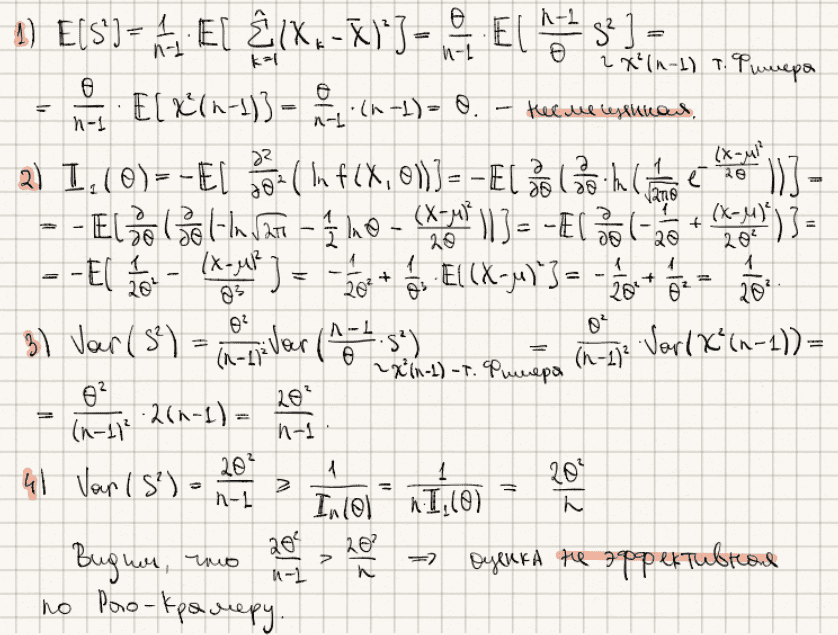 1) E[S²] = 1/(n-1) · E[ ∑_{k=1}^{n} (X_k - X̄)² ] = θ/(n-1) · E[ (n-1)/θ S² ] =
~ χ²(n-1) т. Фишера
= θ/(n-1) · E[χ²(n-1)] = θ/(n-1) · (n-1) = θ. - несмещенная.
2) I₁(θ) = -E[ ∂²/∂θ² (ln f(X, θ))] = -E[ ∂/∂θ ( ∂/∂θ · ln( 1/√(2πθ) e^{-(X-μ)²/2θ} ))] =
= -E[ ∂/∂θ ( ∂/∂θ (-ln √2π - 1/2 ln θ - (X-μ)²/2θ ))] = -E[ ∂/∂θ (-1/2θ + (X-μ)²/2θ² )] =
= -E[ 1/2θ² - (X-μ)²/θ³ ] = -1/2θ² + 1/θ³ · E[(X-μ)²] = -1/2θ² + 1/θ² = 1/2θ².
3) Var(S²) = θ²/(n-1)² · Var( (n-1)/θ · S² ) = θ²/(n-1)² · Var(χ²(n-1)) =
~ χ²(n-1) - т. Фишера
= θ²/(n-1)² · 2(n-1) = 2θ²/(n-1).
4) Var(S²) = 2θ²/(n-1) ≥ 1/Iₙ(θ) = 1/(n·I₁(θ)) = 2θ²/n
Видим, что 2θ²/(n-1) > 2θ²/n ⇒ оценка не эффективная
по Рао-Крамеру.